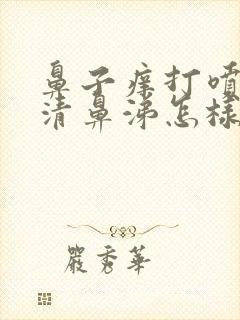 鼻子痒打噴
清鼻涕怎様
嚴秀華